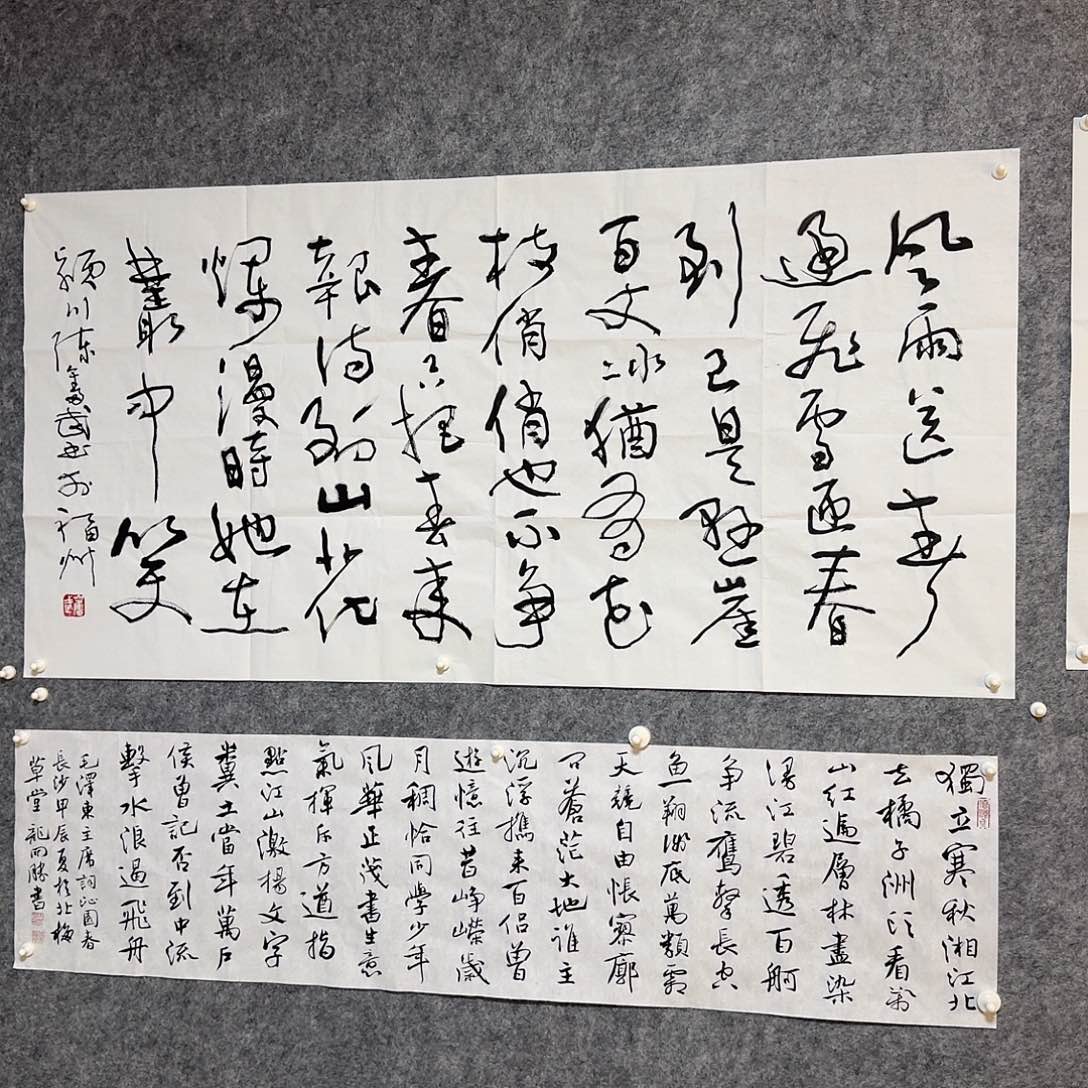 風雨送春
飛雪迎春
到已是懸崖
百丈冰猶有花
枝俏俏也不爭
春只把春來
報待到山花
爛漫時她在
叢中笑
潁川陳武书于福州
獨立寒秋湘江北
去橘子洲頭看萬
山紅遍層林盡染
漫江碧透百舸
爭流鷹擊長空
魚翔淺底萬類霜
天競自由悵寥廓
問蒼茫大地誰主
沉浮攜來百侶曾
遊憶往昔崢嶸歲
月稠恰同學少年
風華正茂書生意
氣揮斥方遒指
點江山激揚文字
糞土當年萬户
侯曾記否到中流
擊水浪遏飛舟
毛澤東主席詞沁園春
長沙甲辰夏於北梅
草堂龍向勝書